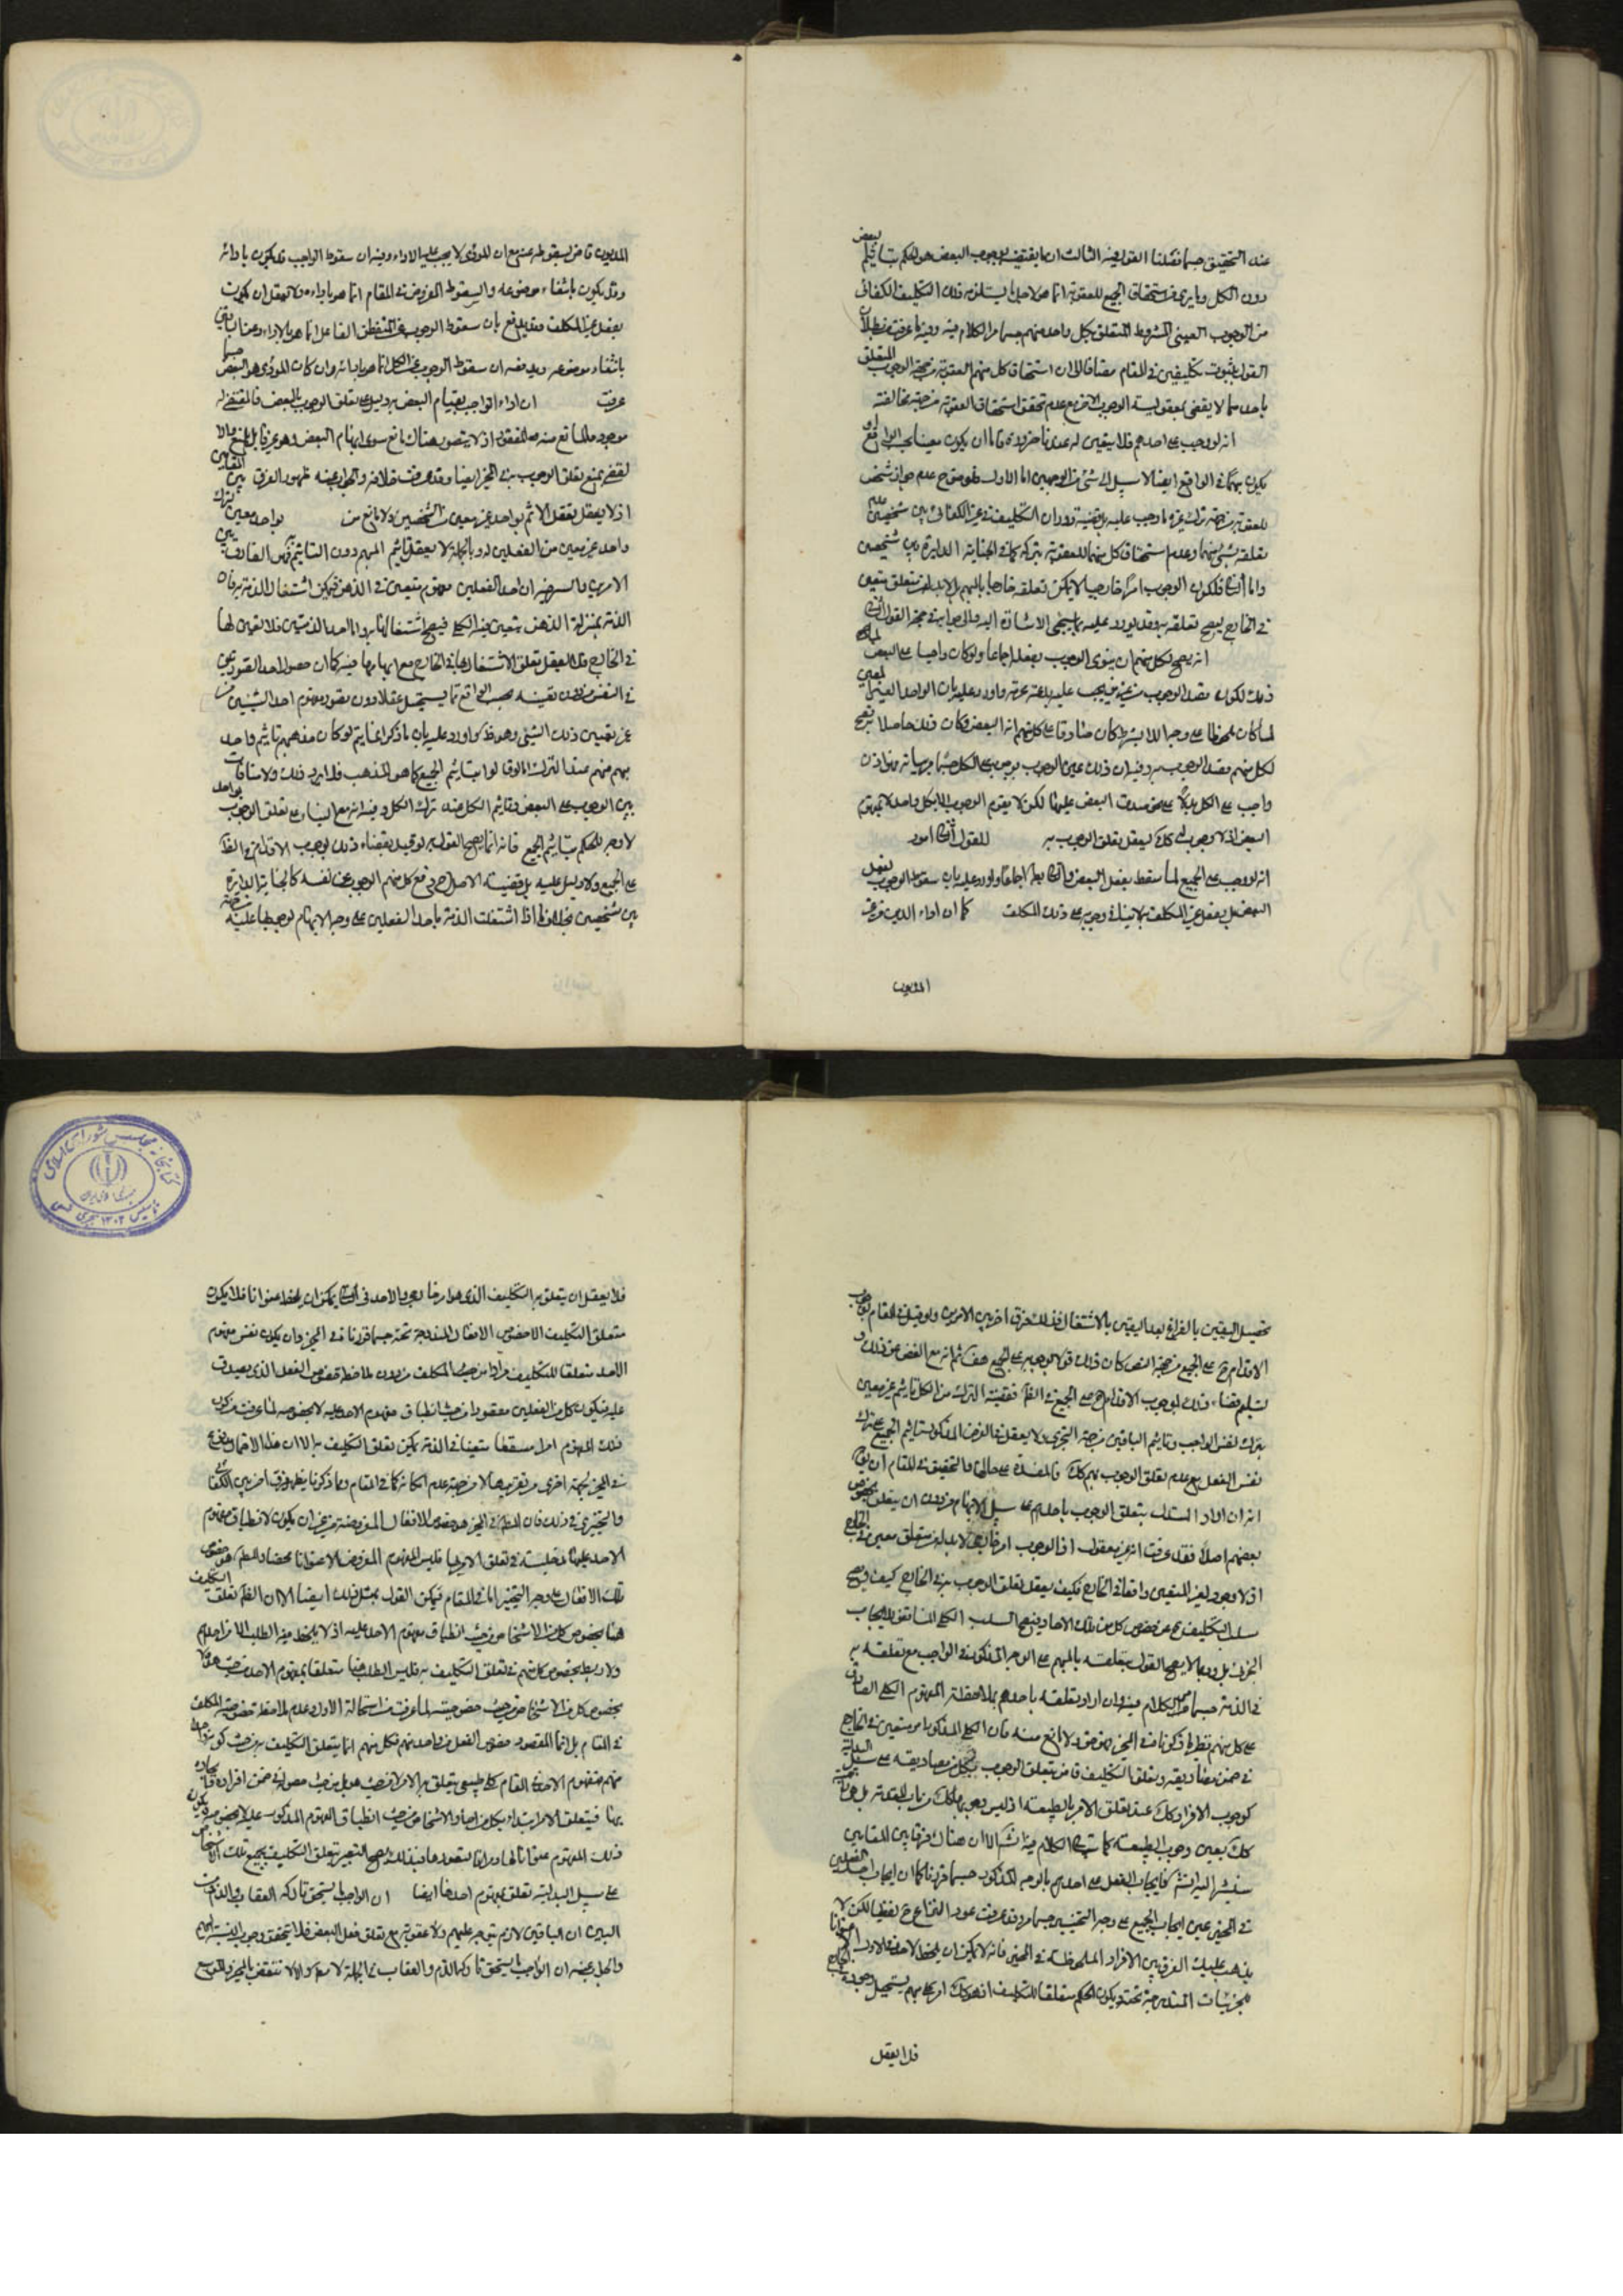 عند التحقيق حسبما فصلنا القول فيه الثالث ان ما يقتضيه وجوب البعض هو الحكم بتاثيم بعض
دون الكل وما يرى من استحقاق الجميع للعقوبة انما هو لاجل ما يستلزمه ذلك التكليف الكفائى
من الوجوب العينى المشروط المتعلق بكل واحد منهم حسبما مر الكلام فيه وفيه ما عرفت من بطلان
القول بثبوت تكليفين فى المقام مضافا الى ان استحقاق كل منهم العقوبة من جهة الوجوب المتعلق
باحدهما لا يقضى بمعقولية الوجوب الاخر مع عدم تحقق استحقاق العقوبة من جهة مخالفته
انه لو وجب على احدهم فلا يتعين له عندنا ضرورة فاما ان يكون معينا بحسب الواقع او
يكون مبهما فى الواقع ايضا لا سبيل الى شئ من الوجهين اما الاول فلوضوح عدم جواز شخص
للعقوبة من جهة ترك غيره ما وجب عليه بل قضية دوران التكليف فى غير الكفائى بين شخصين عدم
تعلقه بشئ منهما وعدم استحقاق كل منهما للعقوبة بتركه كما فى الجنابة الدايرة بين شخصين
واما الثانى فلكون الوجوب امرا خارجيا لا يمكن تعلقه خارجا بالمبهم بل لا بد له من متعلق متعين
فى الخارج ليصح تعلقه به وقد يورد عليه بما ستجئ الاشارة اليه والى جوابه فى حجة القول الثانى
انه يصح لكل منهم ان ينوى الوجوب بفعله اجماعا ولو كان واجبا على البعض لما صح
ذلك لكون قصد الوجوب من غير من يجب عليه بدعة محرمة واورد عليه بان الواحد الغير المعين
لما كان ملحوظا على وجه اللا بشرط كان صادقا على كل منهم انه البعض فكان ذلك حاصلا به فصح
لكل منهم قصد الوجوب به وفيه ان ذلك عين الوجوب على الكل حسبما مر بيانه فهو اذن
واجب على الكل بدلا على نحو صدق البعض عليها لكن لا يقوم الوجوب الا بكل واحد لا بمفهوم
البعض اذ لا وجود له كك ليعقل تعلق الوجوب به للقول الثانى امور
انه لو وجب على الجميع لما سقط بفعل البعض والتالى بط اجماعا واورد عليه بان سقوط الوجوب بفعل
البعض بل بفعل غير المكلف لا ينافى وجوبه على ذلك المكلف كما ان اداء الدين من غير
المديون
المديون قاض بسقوطه عنه مع ان المودى لا يجب عليه الاداء وفيه ان سقوط الواجب قد يكون بادائه
وقد يكون بانتفاء موضوعه والسقوط المفروض فى المقام انما هو بادائه ولا يعقل ان يكون
بفعل غير المكلف وقد يدفع بان سقوط الوجوب عن الشخص الفاعل انما هو بالاداء وعن الباقى
بانتفاء موضوعه ويدفعه ان سقوط الوجوب عن الكل انما هو بادائه وان كان المؤدى هو البعض حسبما
عرفت ان اداء الواجب بقيام البعض به دليل على تعلق الوجوب بالبعض فالمقتضى له
موجود والمانع منه مفقود اذ لا يتصور هناك مانع سوى ابهام البعض وهو غير قابل للمنع والا
لقضى بمنع تعلق الوجوب به فى المخير ايضا وقد عرفت خلافه والجواب عنه ظهور الفرق بين المقامين
اذ لا يعقل تعقل الاثم بواحد غير معين من الشخصين ولا مانع من بواحد معين بترك
واحد غير معين من الفعلين له وبالجملة لا يعقل تاثيم المبهم دون التاثيم بالمبهم فهو الفارق بين
الامرين والسر فيه ان احد الفعلين مفهوم متعين فى الذهن فيمكن اشتغال الذمة به فان
الذمة بمنزلة الذهن يتعين فيه الكلى فيصح اشتغالها به واما احد الذمتين فلا تعين لها
فى الخارج فلا يعقل تعلق الاشتغال بها فى الخارج مع ابهامها فيه كما ان حصول احد التصورين
فى النفس من دون تعينه بحسب الواقع مما يستحيل عقلا دون تصور مفهوم احد الشيئين من
غير تعيين ذلك الشئ وهو ظ كما واورد عليه بان ما ذكر انما يتم لو كان مذهبهم تاثيم واحد
مبهم منهم عند الترك اما لو قالوا بتاثيم الجميع كما هو المذهب فلا يرد ذلك ولا منافاة
بين الوجوب على البعض وتاثيم الكل عند ترك الكل وفيه انه مع البناء على تعلق الوجوب بواحد
لا وجه للحكم بتاثيم الجميع فانه انما يصح القول به لو قيل بقضاء ذلك بوجوب الاقدام فى الظ
على الجميع ولا دليل عليه بل قضية الاصل ح دفع كل منهم الوجوب عن نفسه كالجنابة الدايرة
بين شخصين بخلاف ما اذا اشتغلت الذمة باحد الفعلين على وجه الابهام لوجوبهما عليه من جهة
تحصيل اليقين بالفراغ بعد اليقين بالاشتغال فذلك فرق اخر بين الامرين ولو قيل فى المقام بوجوب
الاقدام ح على الجميع من جهة النص كان ذلك قولا بوجوبه على الجميع هف ثم انه مع الغض عن ذلك و
تسليم قضاء ذلك بوجوب الاقدام ح على الجميع فى الظ فقضية الترك من الكل تاثيم غير معين
بترك نفس الواجب وتاثيم الباقين من جهة التجرى ولا يعقل فى الفرض المذكور تاثيم الجميع على ترك
نفس الفعل مع عدم تعلق الوجوب بهم كك فالمفسدة على حالها والتحقيق فى المقام ان يقال
انه ان اراد المستدل بتعلق الوجوب باحدهم على سبيل الابهام من دون ان يتعلق بخصوص
بعضهم اصلا فقد عرفت انه غير معقول اذ الوجوب امر خارجى لا بد له من متعلق معين فى الخارج
اذ لا وجود لغير المتعين واقعا فى الخارج فكيف يعقل تعلق الوجوب به فى الخارج كيف وصح
سلب التكليف ح عن خصوص كل من تلك الاحاد فيصح السلب الكلى المناقض للايجاب
الجزئى بل وربما لا يصح القول بتعلقه بالمبهم على الوجه المذكور فى الواجب مع تعلقه به
فى الذمة حسبما مر الكلام فيه وان اراد تعلقه باحدهم بملاحظة المفهوم الكلى الصادق
على كل منهم نظير ما ذكرنا فى المخير فهو حق ولا مانع منه فان الكلى المذكور امر متعين فى الخارج
فى ضمن مصاديقه وتعلق التكليف قاض بتعلق الوجوب بكل من مصاديقه على سبيل البدلية
كوجوب الافراد كك عند تعلق الامر بالطبيعة اذ ليس وجوبها كك من باب المقدمة بل هو
كك بعين وجوب الطبيعة كما ستجئ الكلام فيه انشاء الله الا ان هناك فرقا بين المقامين
سنشير اليه انشاء فايجاب الفعل على احدهم بالوجه المذكور حسبما قررناه كما ان ايجاب احد الفعلين
فى المخير عين ايجاب الجميع على وجه التخيير حسبما مر وقد عرفت عود النزاع ح لفظيا لكن لا
يذهب عليك الفرق بين الافراد الملحوظة فى المخير فانه لا يمكن ان يلحظ الاحد فى الاول عنوانا
للجزئيات المندرجة تحته ويكون الحكم متعلقا للتكليف اذ هو كك امر مبهم يستحيل وجوده فى الخارج
فلا يعقل
فلا يعقل ان يتعلق به التكليف الذى هو امر خارجى والاحد فى الثانى يمكن ان يلحظ عنوانا فلا يكون
متعلق التكليف الا خصوص الافعال المندرجة تحته حسبما قررناه فى المخير وان يكون نفس مفهوم
الاحد متعلقا للتكليف مرادا من حيث المكلف من دون ملاحظة خصوص الفعل الذى يصدق
عليه فيكون كل من الفعلين مقصودا من حيث انطباق مفهوم الاحد عليه لا بخصوصه لما عرفت من كون
ذلك المفهوم امرا مستقلا متعينا فى الذمة يمكن تعلق التكليف به الا ان هذا الاحتمال مدفوع
فى المخير بجهة اخرى مر تقريرها لا من جهة عدم امكانه كما فى المقام ومما ذكرنا يظهر فرق اخر بين الكفائى
والتخييرى فى ذلك فان المطلوب فى المخير هو خصوص الافعال المفروضة من غير ان يكون لانطباق مفهوم
الاحد عليها مدخلية فى تعلق الامر بها فليس المفهوم المفروض الا عنوانا محضا والمطلوب هو خصوص
تلك الافعال على وجه التخيير اما فى المقام فيمكن القول بمثل ذلك ايضا الا ان الظ تعلق التكليف
هنا بخصوص كل من الاشخاص من حيث انطباق مفهوم الاحد عليه اذ لا يلحظ فيه الطلب الا من احدهم
ولا ربط بخصوص كل منهم فى تعلق التكليف به فليس الطلب هنا متعلقا بمفهوم الاحد من حيث هو ولا
بخصوص كل من الاشخاص من حيث خصوصيته لما عرفت من استحالة الاول وعدم ملاحظة خصوصية المكلف
فى المقام بل انما المقصود خصوص الفعل من واحد منهم فكل منهم انما يتعلق التكليف به من حيث كونه واحدا
منهم فمفهوم الاحد فى المقام كلى طبيعى يتعلق به الامر لا من حيث هو بل من حيث حصوله فى ضمن افراده
بها فيتعلق الامر ابتداء بكل من احاد الاشخاص من حيث انطباق المفهوم المذكور عليه لا بخصوصه فيكون
ذلك المفهوم عنوانا لها ومراتا لتصورها فبذلك يصح التعبير بتعلق التكليف بجميع تلك الاشخاص
على سبيل البدلية تعلق بمفهوم احدها ايضا ان الواجب ما يستحق تاركه العقاب والذم ومن
البين ان الباقين لا ذم يتوجه عليهم ولا عقوبة مع تعلق فعل البعض فلا يتحقق وجوب بالنسبة اليهم
والجواب عنه ان الواجب ما يستحق تاركه الذم والعقاب فى الجملة لا مط والا لانتقض بالمخير والموسع